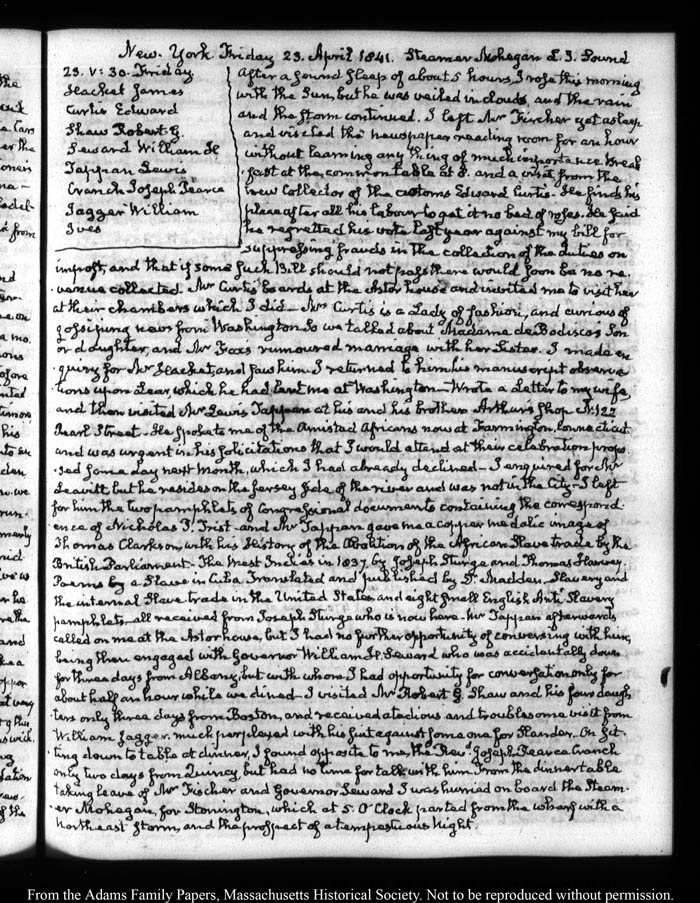 New-York Friday 23. April 1841. Steamer Mohegan L. I. Sound
23. V: 30. Friday
Hacket James
Curtis Edward
Shaw Robert G.
Seward William H
Tappan Lewis
Cranch Joseph Pearce
Jagger William
Ives
After a sound sleep of about 5 hours, I rose this morning
with the Sun, but he was veiled in clouds, and the rain
and the storm continued. I left Mr Fischer yet asleep
and visited the newspaper reading room for an hour
without learning any thing of much importance. Break
fast at the common table at 8. and a visit from the
new Collector of the customs Edward Curtis. He finds his
place after all his labour to get it no bed of roses. He said
he regretted his vote last year against my bill for
suppressing frauds in the collection of the duties on
impost, and that if some such Bill should not pass there would soon be no re.
venue collected. Mr Curtis boards at the Astor house and invited me to visit her
at their chambers which I did. Mrs Curtis is a Lady of fashion, and curious of
gossiping news from Washington. So we talked about Madame de Bodisco's Son
or daughter, and Mr Fox's rumoured marriage with her Sister. I made en
quiry for Mr Hacket, and saw him. I returned to him his manuscript observa
tions upon Lear, which he had lent me at Washington— Wrote a Letter to my wife,
and then visited Mr Lewis Tappan at his and his brother Arthur's Shop N. 122
Pearl Street. He spoke to me of the Amistad Africans now at Farmington, Connecticut
and was urgent in his solicitations that I would attend at their celebration propo
sed some day next month, which I had already declined— I enquired for Mr
Leavitt but he resides on the Jersey side of the river and was not in the City— I left
for him the two pamphlets of Congressional documents containing the correspond.
ence of Nicholas P. Trist— and Mr Tappan gave me a copper medallic image of
Thomas Clarkson, with his History of the Abolition of the African Slave trade by the
British Parliament. The West Indies in 1837, by Joseph Sturge and Thomas Harvey.
Poems by a Slave in Cuba. Translated and published by Dr Madden, Slavery and
the internal Slave trade in the United States, and eight small English Anti Slavery
pamphlets, all received from Joseph Sturge who is now here. Mr Tappan afterwards
called on me at the Astor house, but I had no further opportunity of conversing with him,
being then engaged with Governor William H. Seward who was accidentally down
for three days from Albany, but with whom I had opportunity for conversation only for
about half an hour while we dined— I visited Mr Robert G. Shaw and his four daugh
ters only three days from Boston, and received a tedious and troublesome visit from
William Jagger, much perplexed with his suit against some one for Slander. On sit.
ting down to table at dinner, I found opposite to me, the Revd. Joseph Pearce Cranch
only two days from Quincy, but had no time for talk with him. From the dinner table
taking leave of Mr Fischer and Governor Seward I was hurried on board the Steam.
er Mohegan, for Stonington, which at 5. O'Clock parted from the wharf with a
northeast storm, and the prospect of a tempestuous Night.
From the Adams Family Papers, Massachusetts Historical Society. Not to be reproduced without permission.